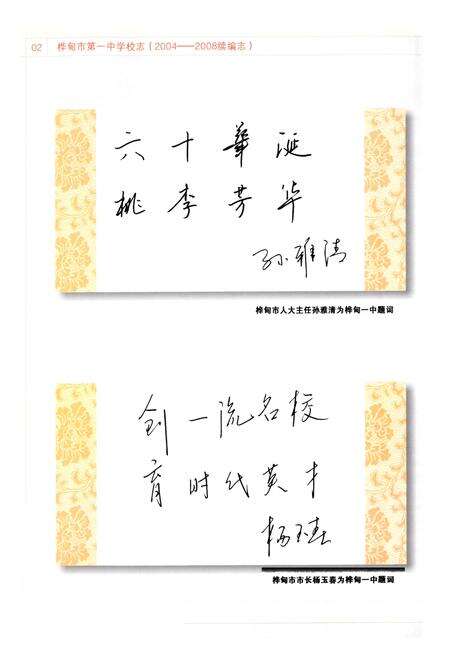 02 桦甸市第一中学校志（2004——2008续编志）
六十華诞
桃李芳华
孙雅清
桦甸市人大主任孙雅清为桦甸一中题词
创一流名校
育时代英才
杨玉春
桦甸市市长杨玉春为桦甸一中题词